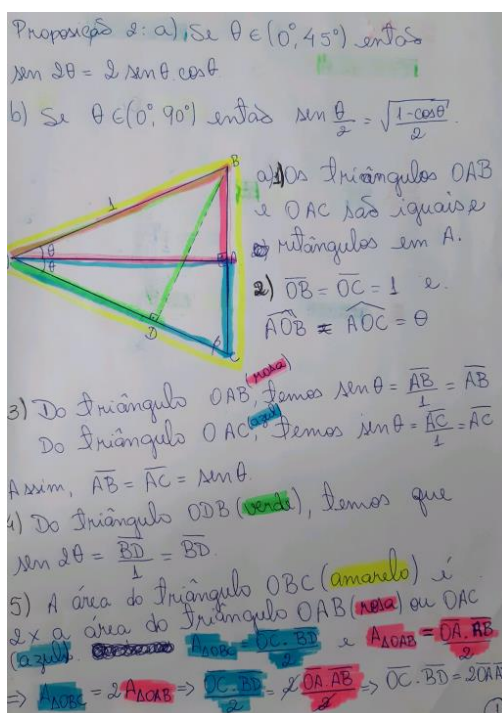 Proposição 2: a) Se θ ∈ (0°, 45°) então
sen 2θ = 2 sen θ. cos θ
b) Se θ ∈ (0°, 90°) então sen θ/2 = √((1-cosθ)/2).
B
1
θ
θ
A
D
C
a) 1) Os triângulos OAB
e OAC são iguais e
retângulos em A.
2) OB = OC = 1 e
AÔB = AÔC = θ
(rosa)
3) Do triângulo OAB, temos sen θ = AB/1 = AB
(azul)
Do triângulo OAC, temos sen θ = AC/1 = AC
Assim, AB = AC = sen θ.
4) Do triângulo ODB (verde), temos que
sen 2θ = BD/1 = BD.
5) A área do triângulo OBC (amarelo) é
2 x a área do triângulo OAB (rosa) ou OAC
(azul). A△OBC = OC . BD/2 e A△OAB = OA . AB/2
=> A△OBC = 2 A△OAB => OC . BD/2 = 2 OA . AB/2 => OC . BD = 2OA